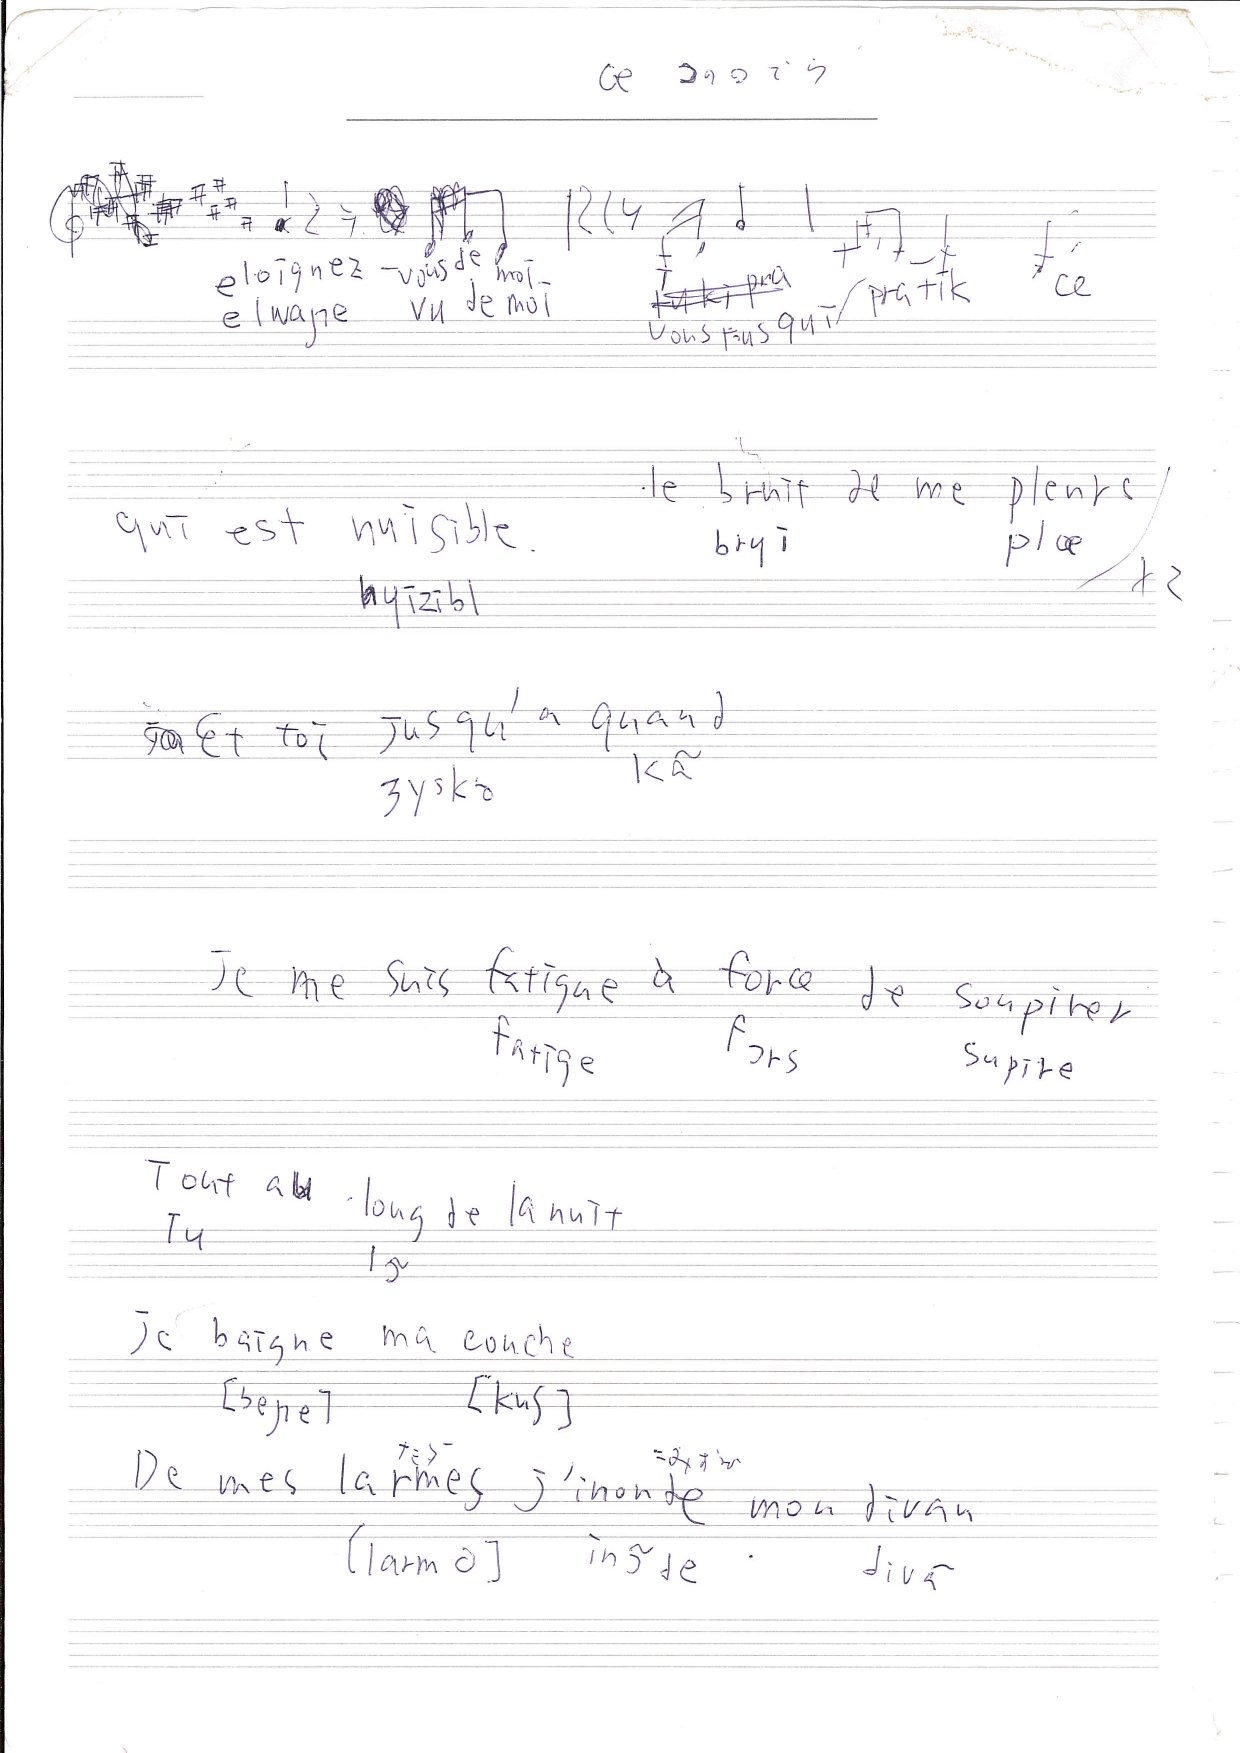 œ
eloignez-vous de moi
elwaɲe vu de moi
vous tous qui / pratik
ce
le bruit de me pleurs
qui est nuisible.
bryi plœ
nyizibl
x2
Et toi jusqu'a quand
ʒysko kã
Je me suis fatigue à force de soupirer
fatige fɔrs supire
Tout au long de la nuit
Tu lɔ̃
je baigne ma couche
[beɲe] [kuʃ]
De mes larmes j'inonde mon divan
[larmə] inɔ̃de divã